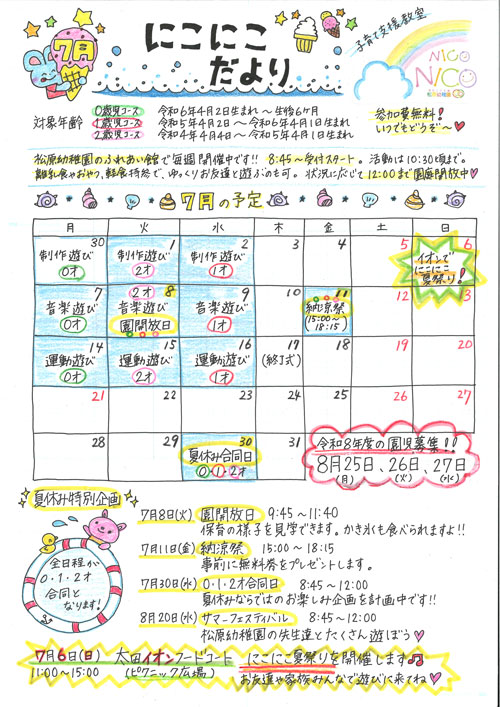 7月
にこにこ
だより
子育て支援教室
NICO
NICO
対象年齢
0歳児コース 令和6年4月2日生まれ～生後6ヶ月
1歳児コース 令和5年4月2日～令和6年4月1日生まれ
2歳児コース 令和4年4月4日～令和5年4月1日生まれ
参加費無料!
いつでもどうぞ～♥
松原幼稚園のふれあい館で毎週開催中です!! 8:45～受付スタート。活動は10:30頃まで。
離乳食やおやつ、軽食持参で、ゆっくりお友達と遊ぶのも可。状況に応じて12:00まで園庭開放中♥
7月の予定
月 火 水 木 金 土 日
30 1 2 3 4 5 6
制作遊び 0才 制作遊び 2才 制作遊び 1才 イオンでにこにこ夏祭り!
7 8 9 10 11 12 13
音楽遊び 0才 2才 音楽遊び 園開放日 音楽遊び 1才 納涼祭 (15:00～18:15)
14 15 16 17 18 19 20
運動遊び 0才 運動遊び 2才 運動遊び 1才 (終了式)
21 22 23 24 25 26 27
28 29 30 31
夏休み合同日 0・1・2才
令和8年度の園児募集!!
8月25日、26日、27日
(月) (火) (水)
夏休み特別企画
全日程が
0・1・2才
合同と
なります!
7月8日(火) 園開放日 9:45～11:40
保育の様子を見学できます。かき氷も食べられますよ!!
7月11日(金) 納涼祭 15:00～18:15
事前に無料券をプレゼントします。
7月30日(水) 0・1・2才合同日 8:45～12:00
夏休みならではのお楽しみ企画を計画中です!!
8月20日(水) サマーフェスティバル 8:45～12:00
松原幼稚園の先生達とたくさん遊ぼう♥
7月6日(日) 太田イオンフードコート にこにこ夏祭りを開催します♫
11:00～15:00 (ピクニック広場) お友達や家族みんなで遊びに来てね♥